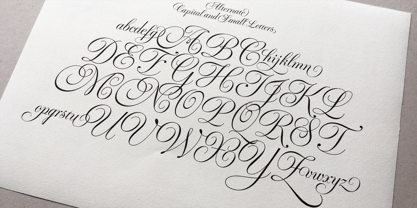 Alternate
Capital and Small Letters
abcdefg ABC hijklmn
DEFGHIJKL
MNOPQRST
opqrstu UVWXYZ vwxyz